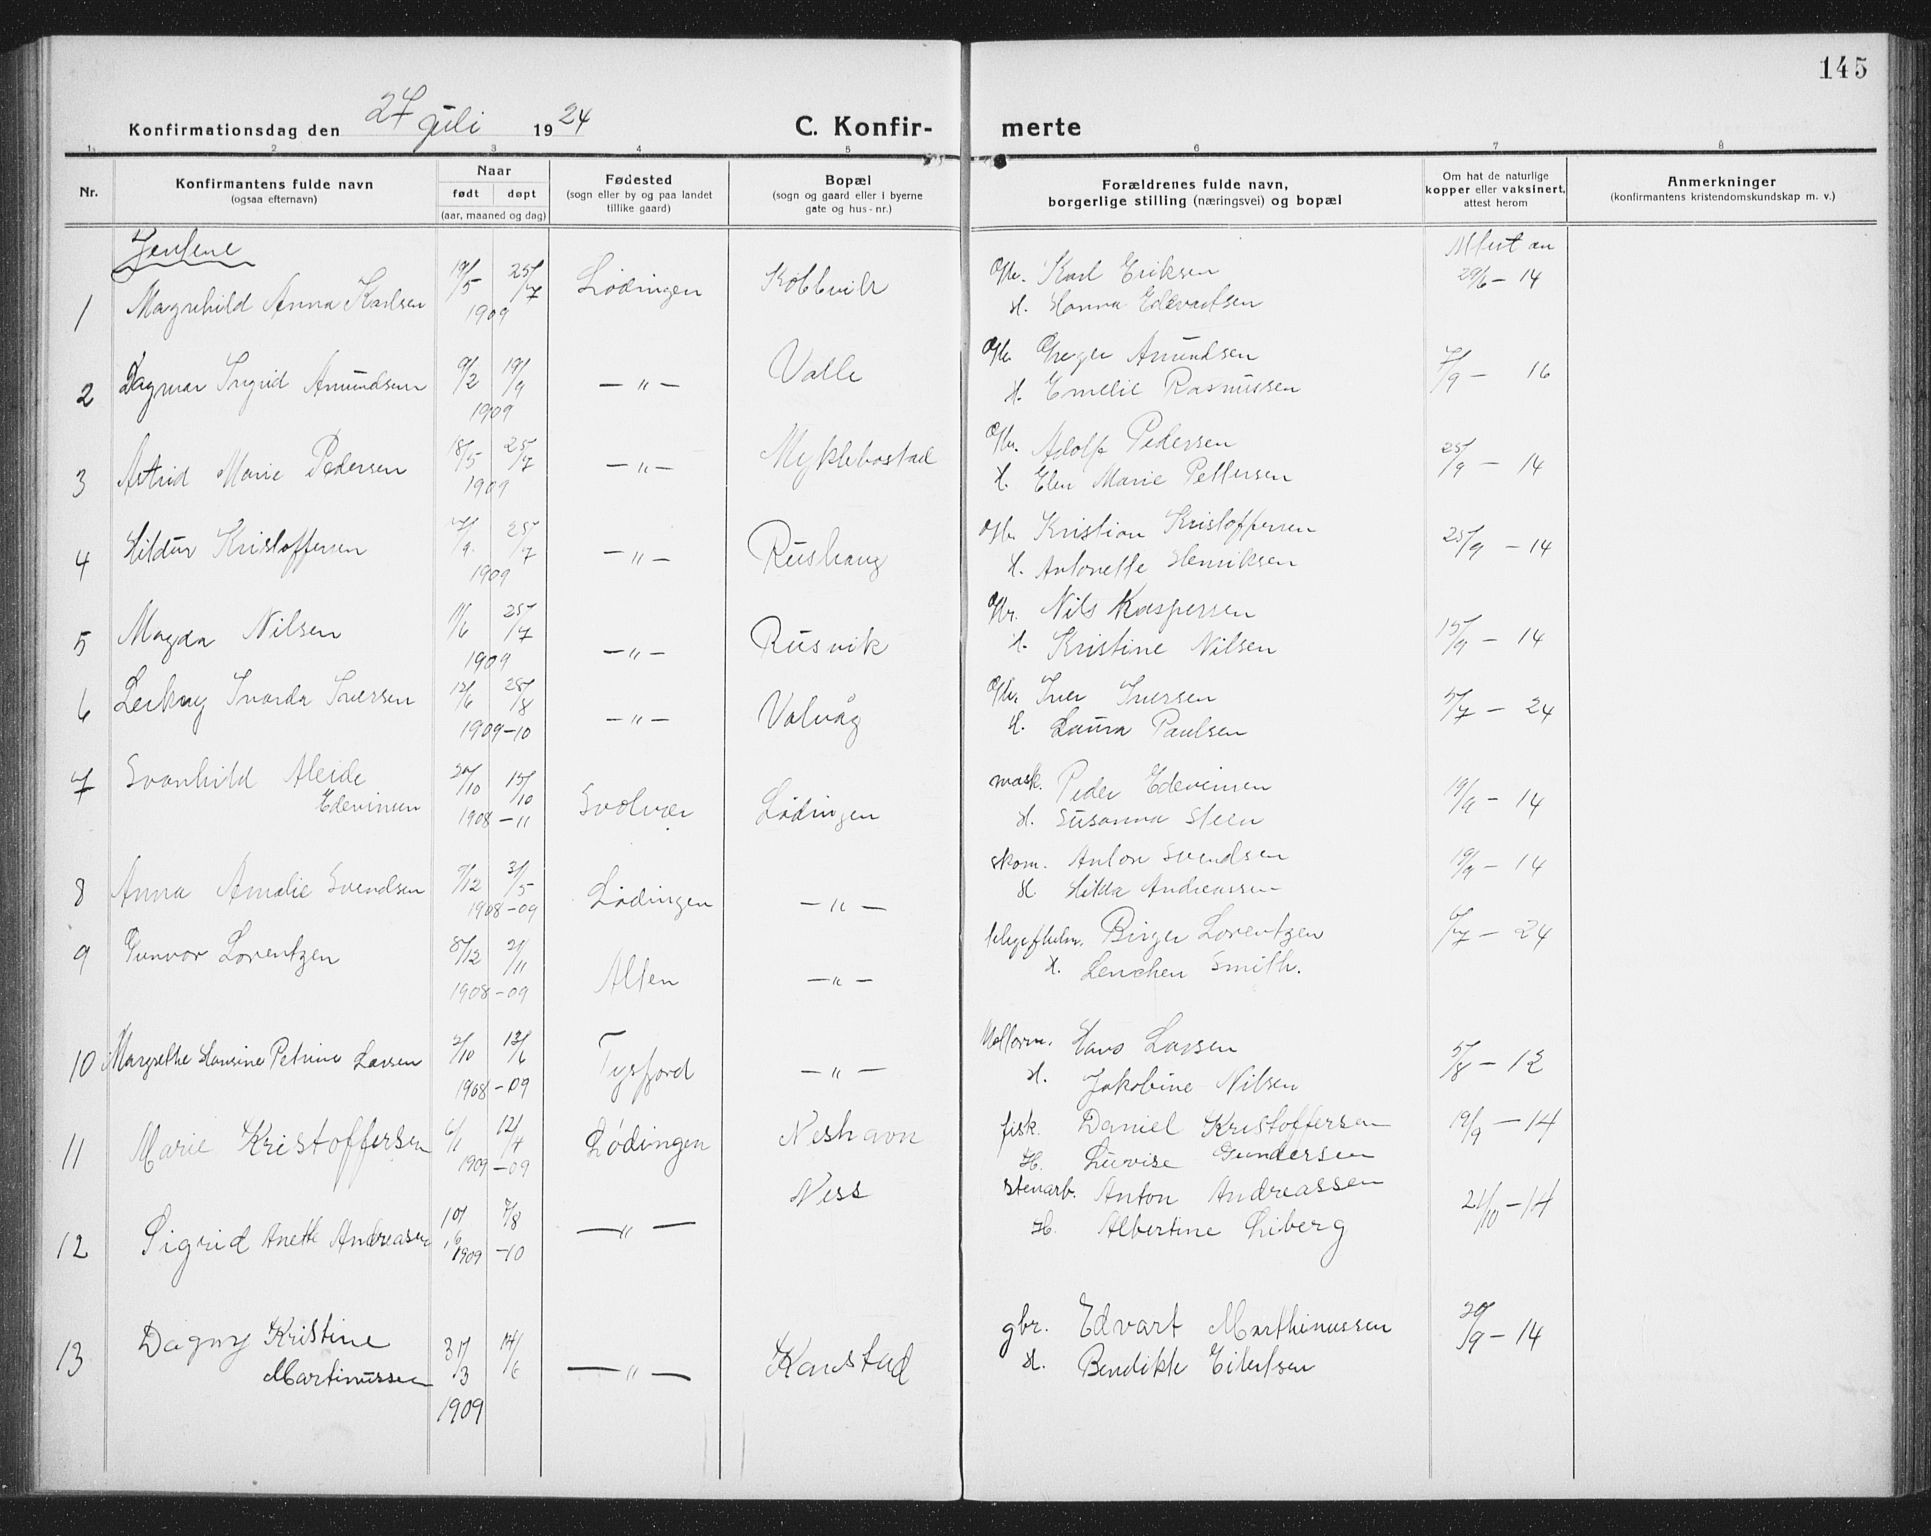 145
Konfirmationsdag den 27 juli 1924 C. Konfir- merte
1. 2 3 4 5 6 7 8
Nr. Konfirmantens fulde navn (ogsaa efternavn) Naar født døpt (aar, maaned og dag) Fødested (sogn eller by og paa landet tillike gaard) Bopæl (sogn og gaard eller i byerne gate og hus-nr.) Forældrenes fulde navn, borgerlige stilling (næringsvei) og bopæl Om hat de naturlige kopper eller vaksinert, attest herom Anmerkninger (konfirmantens kristendomskundskap m. v.)
Jentene
1 Magnhild Anna Karlsen 19/5 25/7 1909 Lødingen Kobbvik Gbr. Karl Eriksen 29/6 - 14
H. Hanna Edevartsen
2 Dagmar Ingrid Amundsen 9/2 19/9 1909 - " - Valle Gbr. Greger Amundsen 7/9 - 16
H. Emelie Rasmussen
3 Astrid Marie Pedersen 18/5 25/7 1909 - " - Myklebostad Gbr. Adolf Pedersen 25/9 - 14
H. Elen Marie Pettersen
4 Hildur Kristoffersen 25/7 1909 - " - Rushaug Gbr. Kristian Kristoffersen 25/9 - 14
H. Antonette Henriksen
5 Magda Nilsen 11/6 25/7 1909 - " - Rusvik Gbr. Nils Kaspersen 15/9 - 14
H. Kristine Nilsen
6 Ivarda Iversen 12/6 28/8 1909-10 - " - Valvåg Gbr. Iver Iversen 5/7 - 24
H. Laura Paulsen
7 Svanhild Aleide Edevinsen 20/10 15/10 1908-11 Svolvær Lødingen mask. Peder Edevinsen 19/9 - 14
H. Susanna Steen
8 Anna Amalie Svendsen 9/12 3/5 1908-09 Lødingen - " - skom. Anton Svendsen 19/9 - 14
H. Hilda Andreassen
9 Gunvor Lorentzen 8/12 2/11 1908-09 Alten - " - Birger Lorentzen 6/7 - 24
H. Lenchen Smith.
10 Margrethe Hansine Petrine Larsen 2/10 13/6 1908-09 Tysfjord - " - Hans Larsen 5/8 - 12
H. Jakobine Nilsen
11 Marie Kristoffersen 6/1 12/4 1909-09 Lødingen Neshavn fisk. Daniel Kristoffersen 19/9 - 14
H. Luvise Gundersen
12 Sigrid Anette Andreasen 10/6 7/8 1909-10 - " - Ness stenarb. Anton Andreassen 21/10 - 14
H. Albertine Liberg
13 Dagny Kristine Martinussen 31/3 14/6 1909 - " - Kanstad gbr. Edvart Marthinussen 20/9 - 14
H. Bendikte Eilertsen